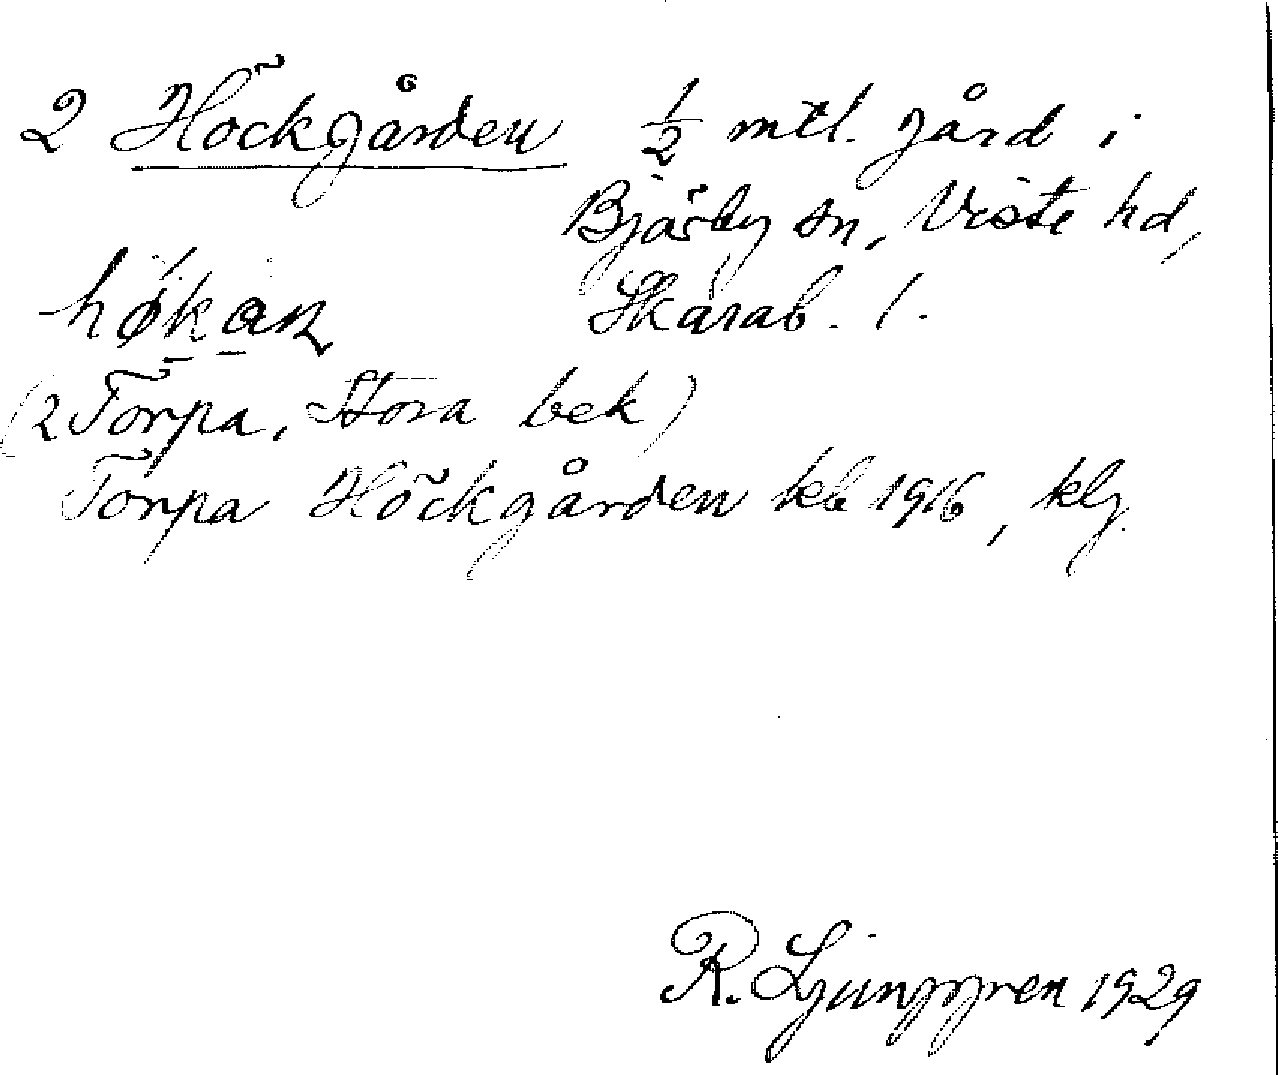 2 Höckgården ½ mtl. gård i
Bjärby sn, Viste hd,
Skarab. l.
høkan
(2 Torpa, Stora bek)
Torpa Höckgården kb 1916, klg.
R. Ljunggren 1929